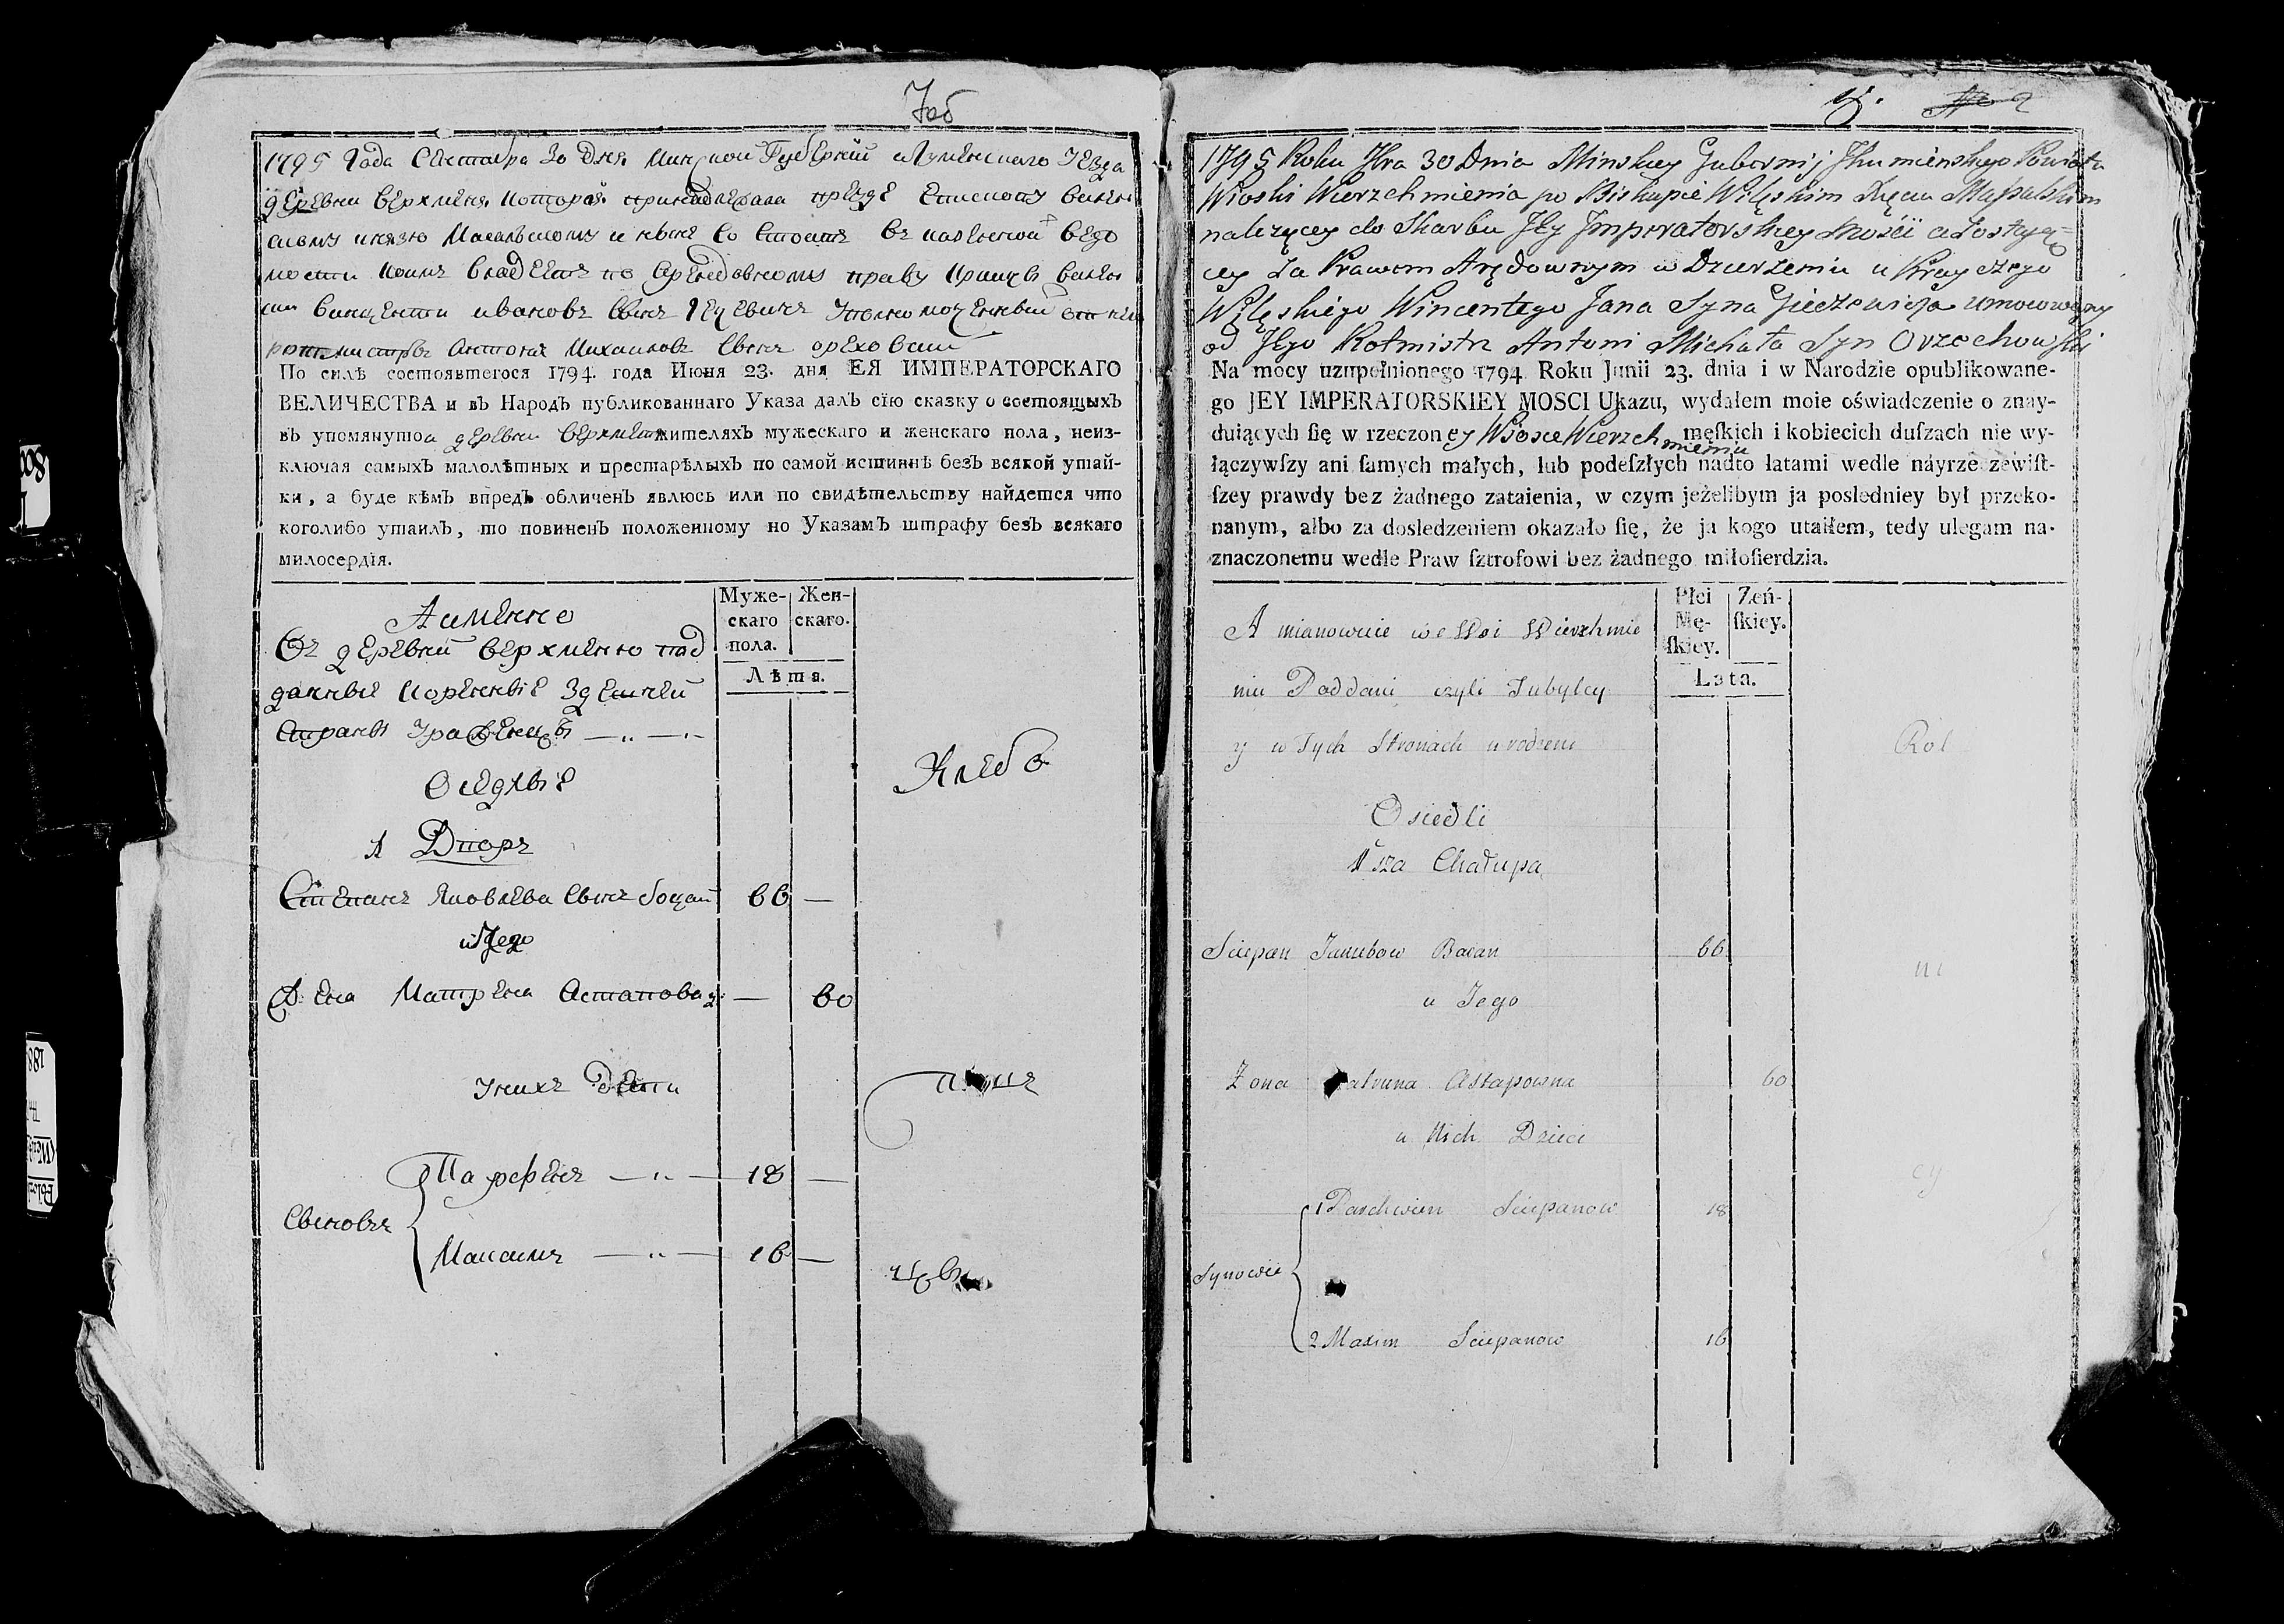 1795 Года Сентября 30 Дня Минской Губернии Игуменскаго Уезда
деревни верхменя которая принадлежала прежде Епископу виленс
скому князю Масальскому и ныне Состоитъ въ казенной ведо
мости коимъ владеетъ по Арендовному праву краичи вилен
ски винценти ивановъ сынъ Гецевичъ Уполномоченный от него
ротмистръ Антони Михаиловъ сынъ Ореховски
По силѣ состоявшегося 1794. года Июня 23. дня ЕЯ ИМПЕРАТОРСКАГО
ВЕЛИЧЕСТВА и въ Народъ публикованнаго Указа далъ сїю сказку о состоящыхъ
въ упомянутой деревни верхмени жителяхъ мужескаго и женскаго пола, неиз-
ключая самыхъ малолѣтныхъ и престарѣлыхъ по самой истиннѣ безъ всякой утай-
ки, а буде кѣмъ впредь обличенъ явлюсь или по свидѣтельству найдется что
коголибо утаилъ, то повиненъ положенному по Указамъ штрафу безъ всякаго
милосердїя.
Муже-
скаго
пола.
Жен-
скаго.
Лѣта.
А именно
Въ деревни верхменю под
данные коренные здешней
страны Уроженцы
Оседлые
1 Дворъ
Хлебо
Степанъ Яковлева сынъ боцан 66 —
и Его
Жена Матрена Астапова д: — 60
У нихъ Дети
Сыновъя
Парфенъ — " — 18 —
Максимъ — " — 16 —
1795 Roku 7bra 30 Dnia Minskiey Gubernij Jhumienskiego Powiatu
Wioski Wierzchmienia po Biskupie Wileskim Xięciu Massalskim
należącey do Skarbu Jey Imperatorskiey Mości a dostaią=
cey za Prawem Arędownym w Dzierżeniu u Krayczego
Wileskiego Wincentego Jana Syna Gieczewicza umocowany
od Jego Rotmistrz Antoni Michała Syn Orzechowski
Na mocy uzupełnionego 1794 Roku Junii 23. dnia i w Narodzie opublikowane-
go JEY IMPERATORSKIEY MOSCI Ukazu, wydałem moie oświadczenie o znay-
duiących ſię w rzeczoney Wiosce Wierzchmieniu męſkich i kobiecich duſzach nie wy-
łączywſzy ani ſamych małych, lub podeſzłych nadto latami wedle náyrzezewiſt-
ſzey prawdy bez żadnego zataienia, w czym jeżelibym ja posledniey był przeko-
nanym, albo za dosledzeniem okazało ſię, że ja kogo utaiłem, tedy ulegam na-
znaczonemu wedle Praw ſztrofowi bez żadnego miłoſierdzia.
Płci
Mę-
ſkiey.
Zeń-
ſkiey.
Lata.
A mianowicie we Wsi Wierzhmie
niu Poddani czyli Tubylcy
y w Tych Stronach urodzeni
Rol
Osiedli
1sza Chałupa
Sciepan Jakubow Bacan 66
ni
u Jego
Zona Matruna Astapowna 60
u Nich Dzieci
cy
Synowie
1 Parchwien Sciepanow 18
2 Maxim Sciepanow 16